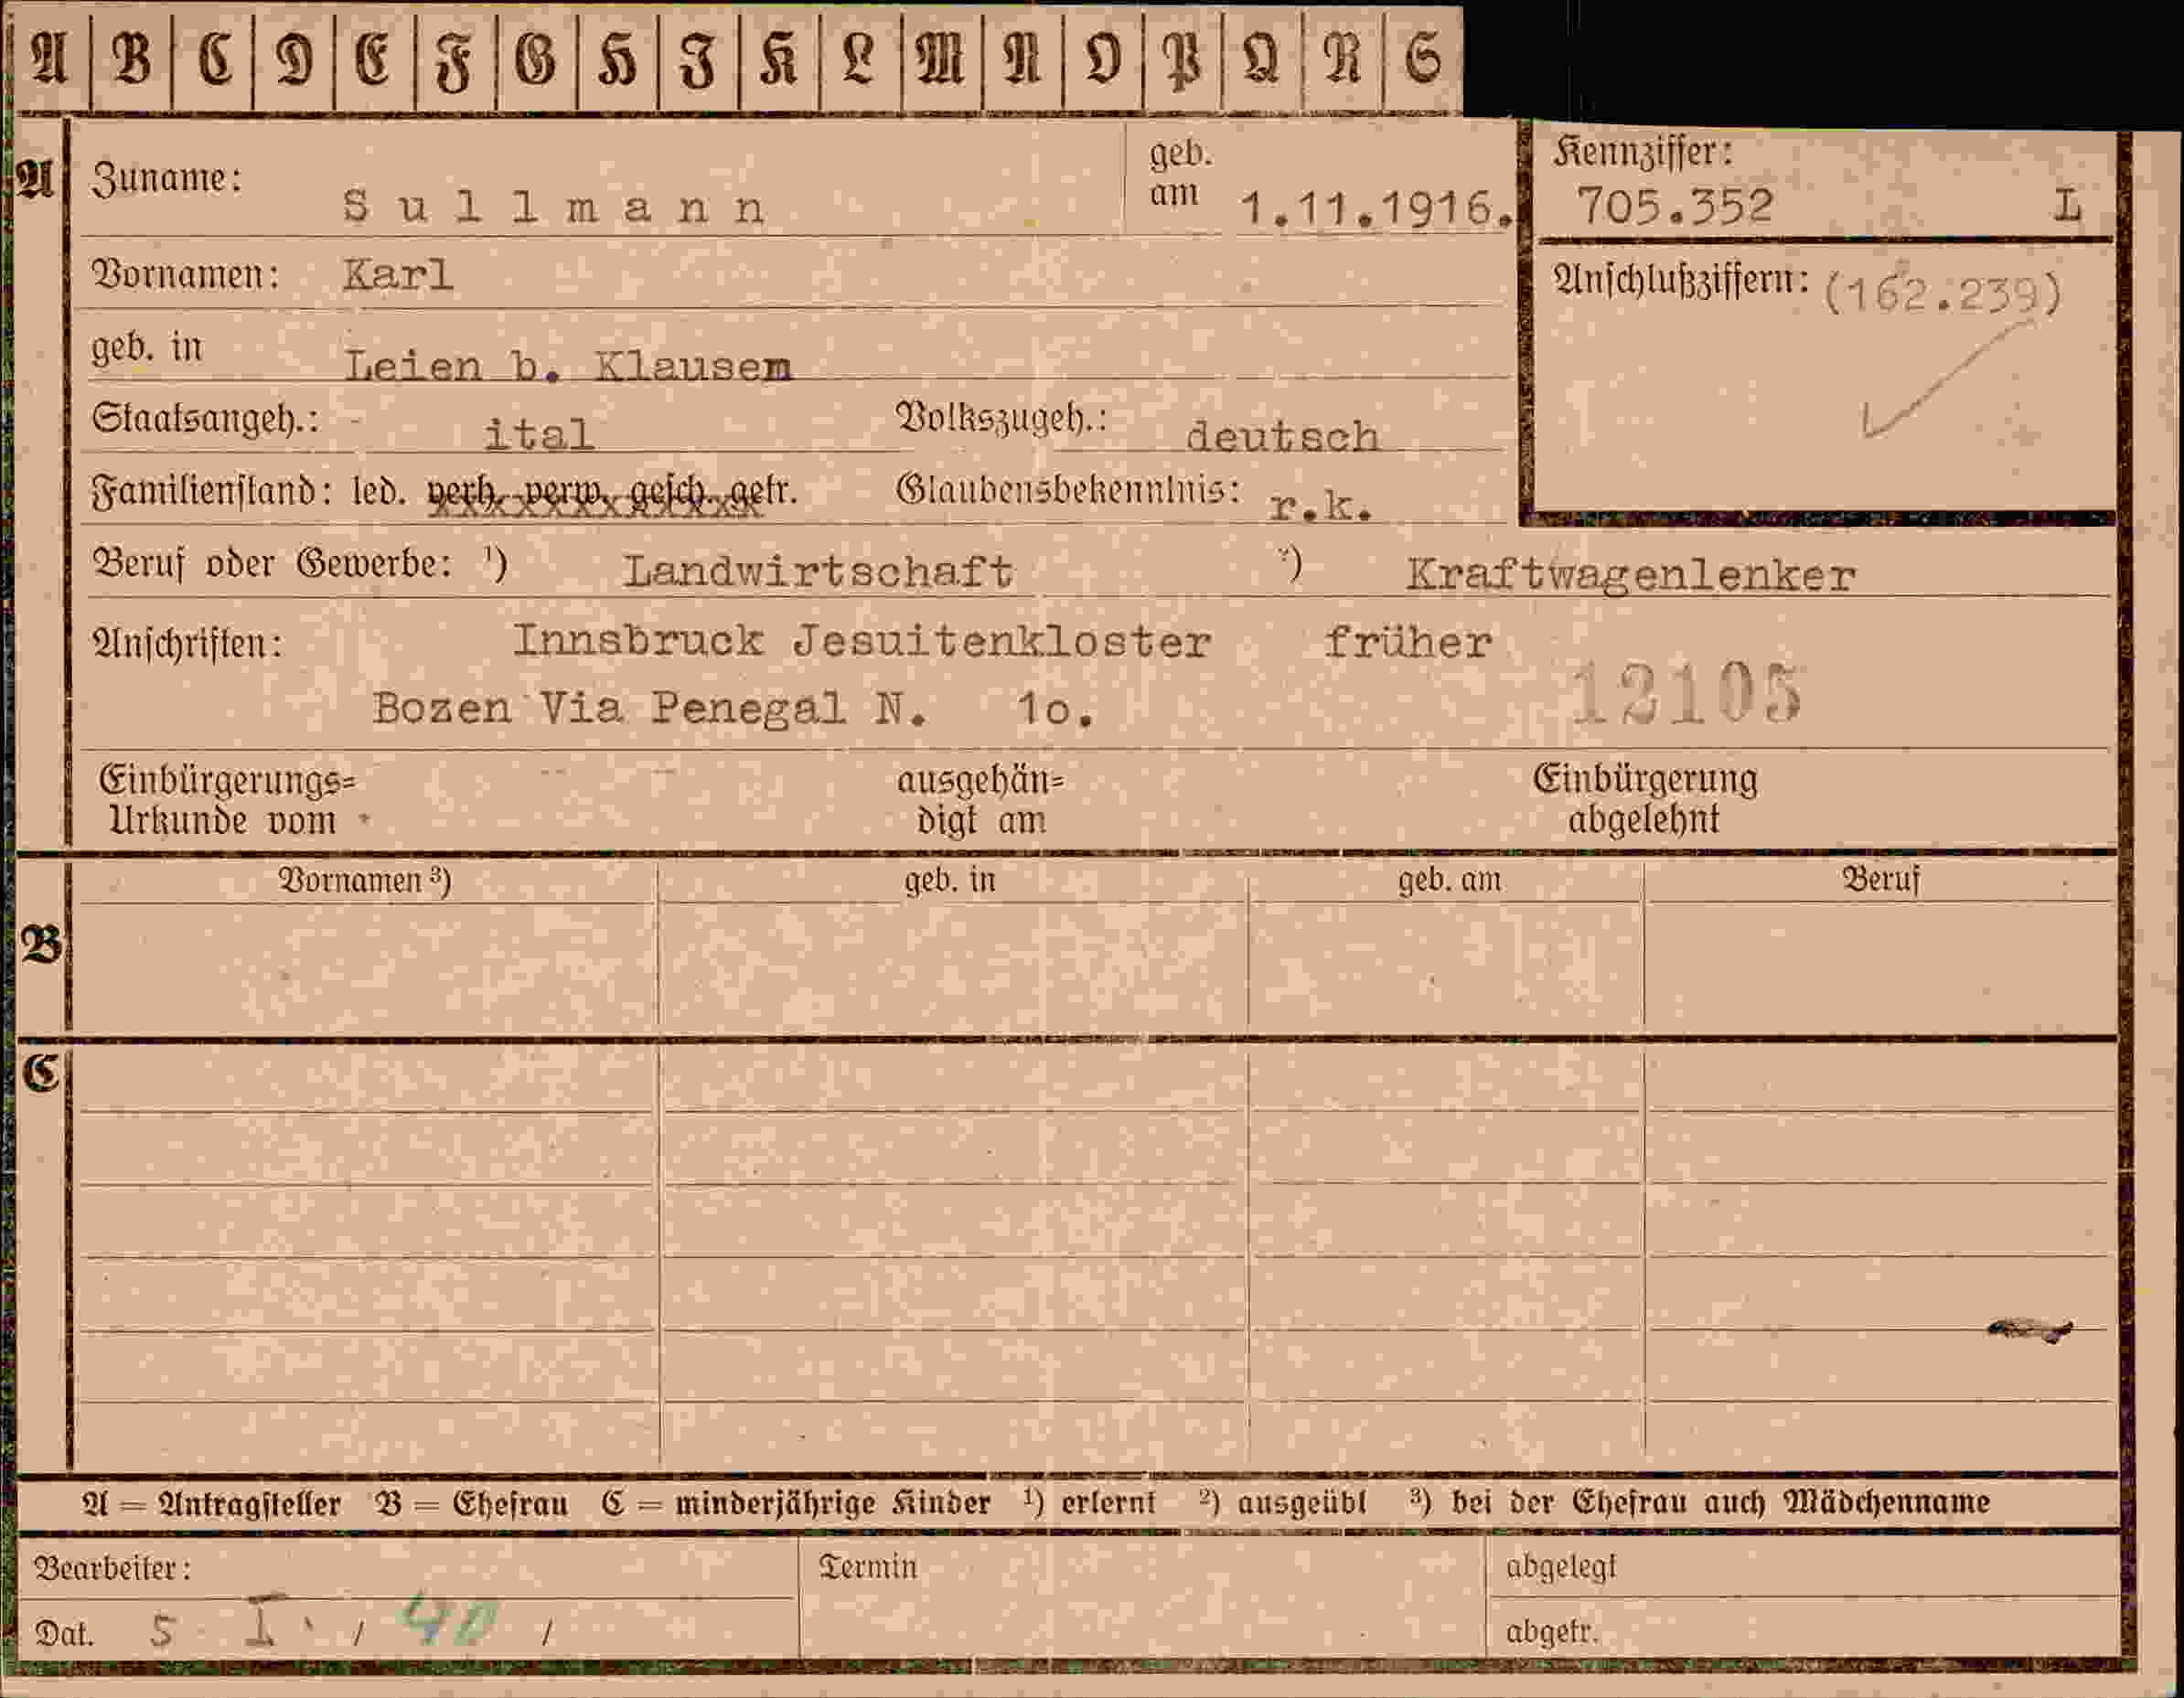 A B C D E F G H I K L M N O P Q R S
A Zuname: Sullmann geb. am 1.11.1916. Kennziffer: 705.352 L
Vornamen: Karl Anschlußziffern: (162.239)
geb. in Leien b. Klausem
Staatsangeh.: ital Volkszugeh.: deutsch
Familienstand: led. verh. verw. gesch. getr. Glaubensbekenntnis: r.k.
Beruf oder Gewerbe: ¹) Landwirtschaft ²) Kraftwagenlenker
Anschriften: Innsbruck Jesuitenkloster früher
Bozen Via Penegal N. 1o. 12105
Einbürgerungs= ausgehän= Einbürgerung
Urkunde vom digt am abgelehnt
Vornamen ³) geb. in geb. am Beruf
B
C
A = Antragsteller B = Ehefrau C = minderjährige Kinder ¹) erlernt ²) ausgeübt ³) bei der Ehefrau auch Mädchenname
Bearbeiter: Termin abgelegt
Dat. 5 I. / 40 / abgetr.